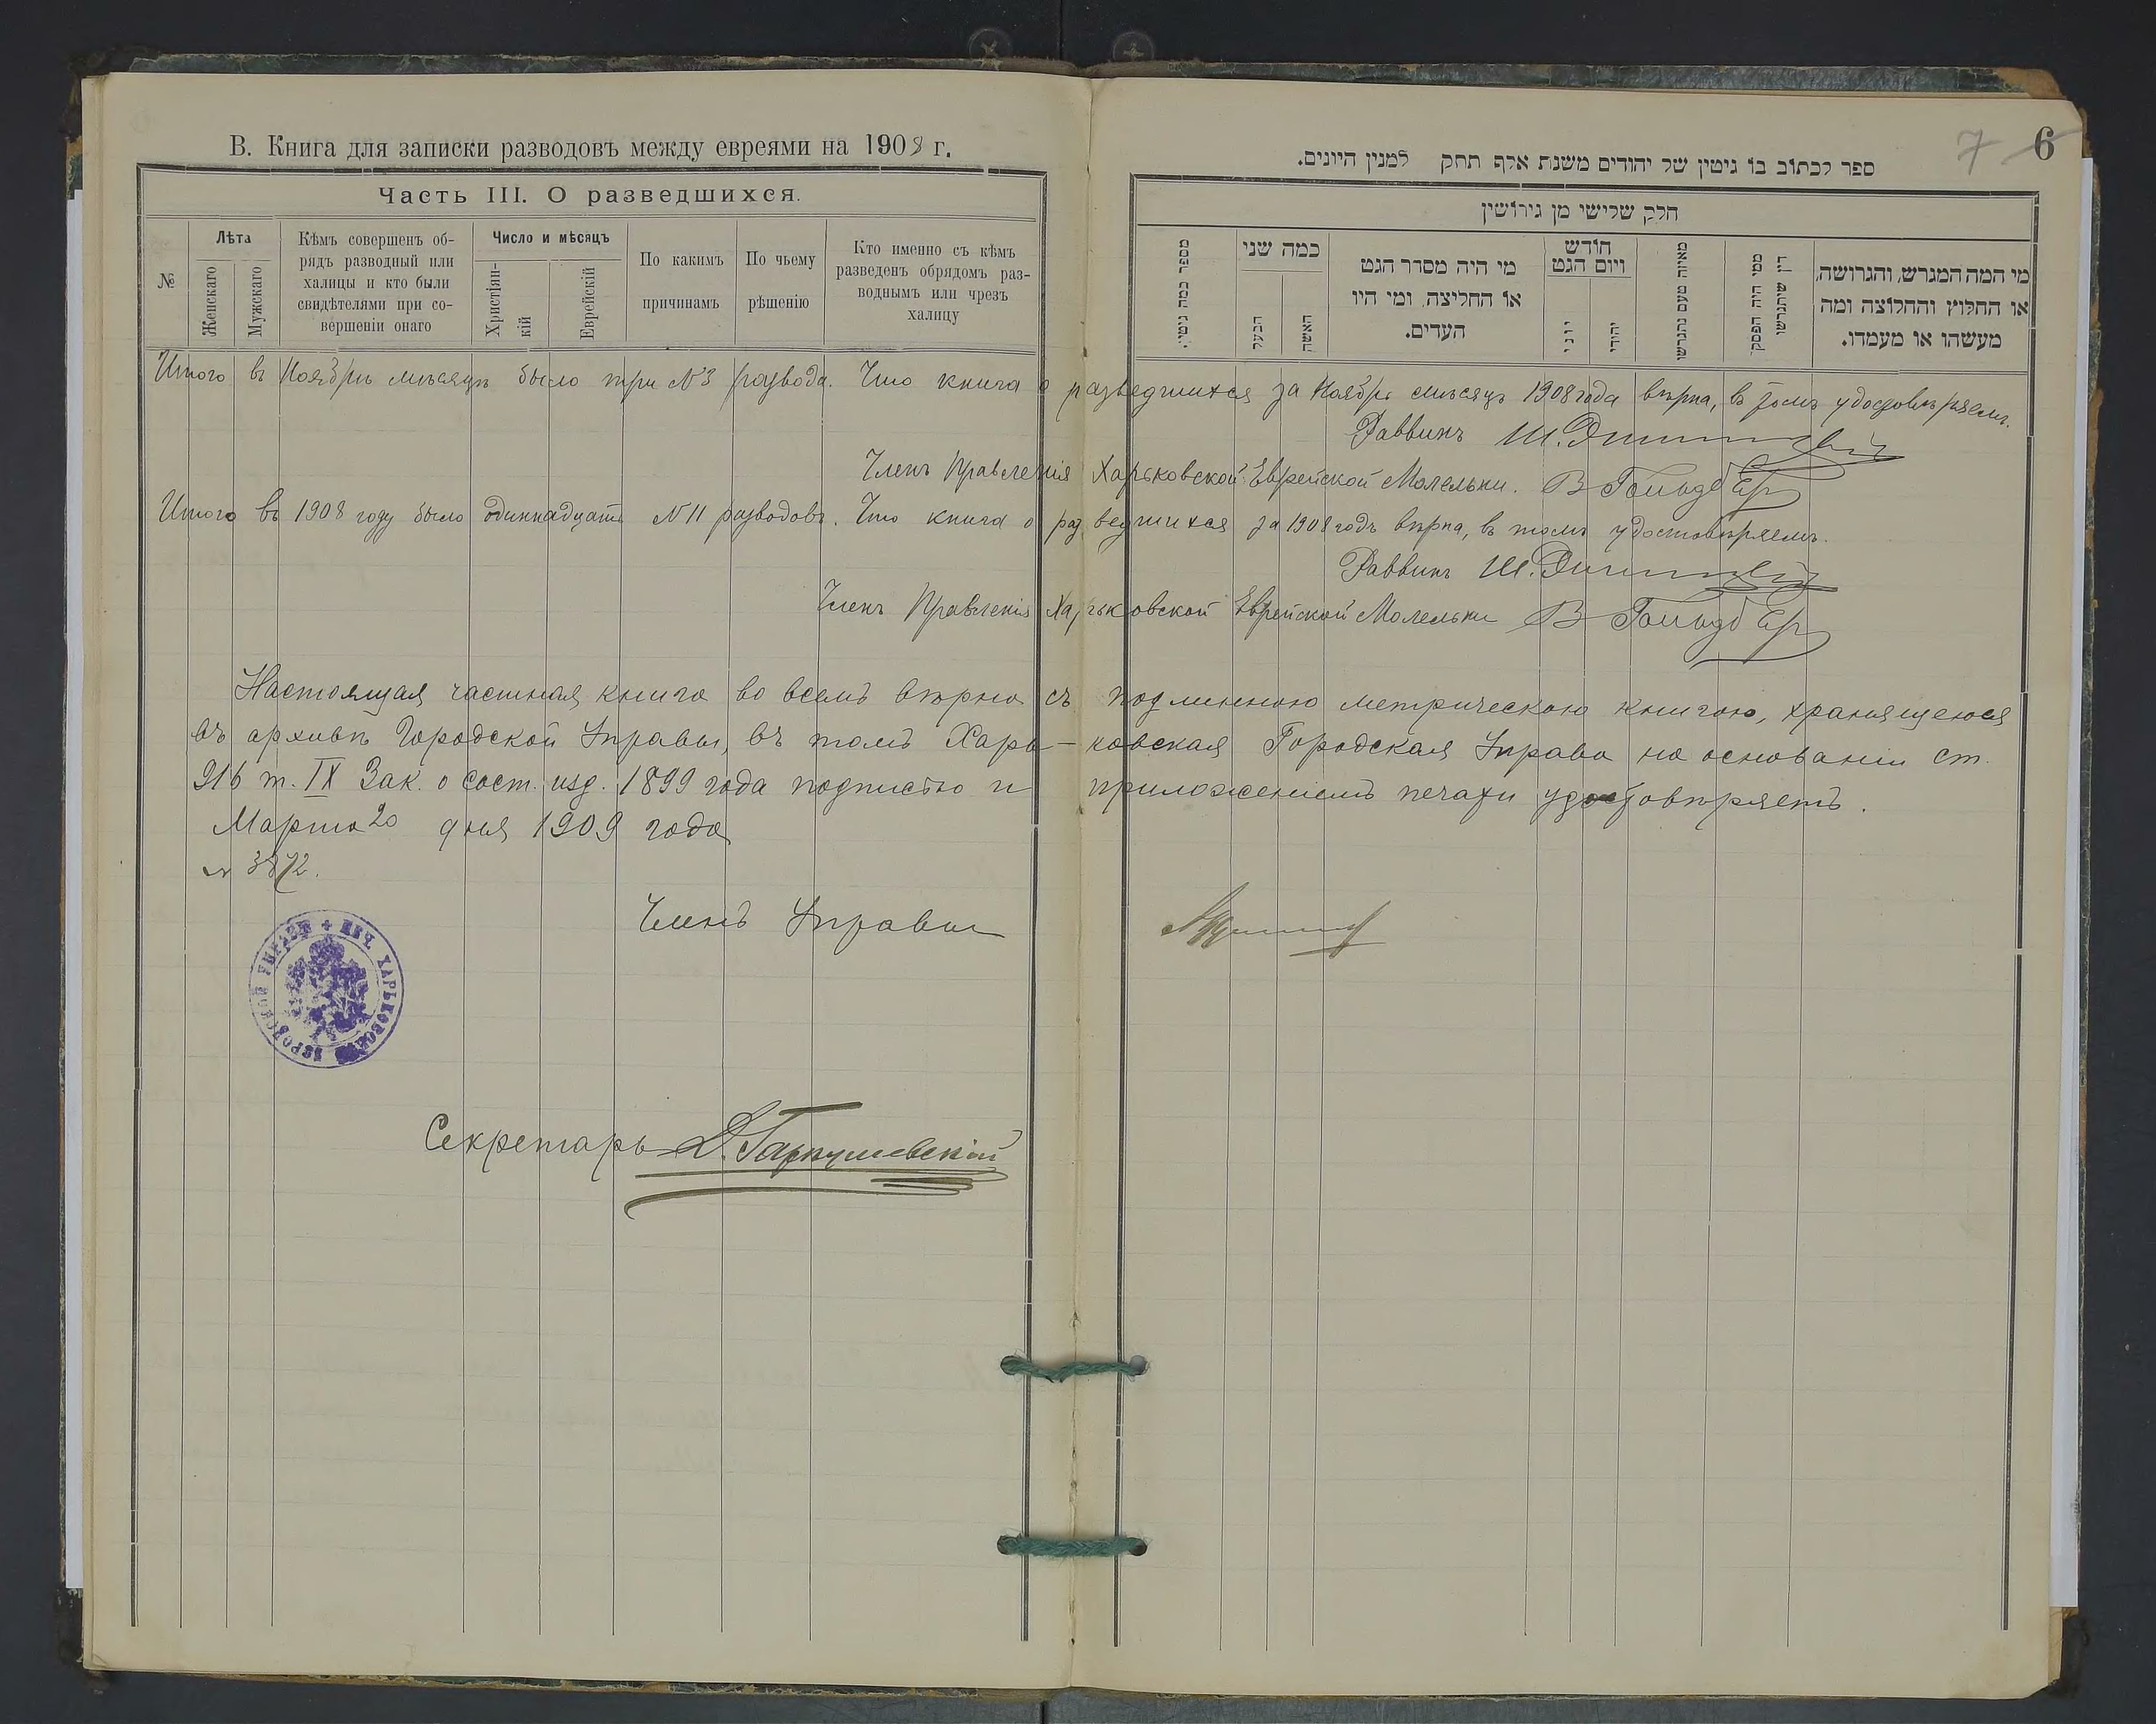 В. Книга для записки разводовъ между евреями на 1908 г.
Часть III. О разведшихся.
№
Лѣта
Женскаго
Мужскаго
Кѣмъ совершенъ об-
рядъ разводный или
халицы и кто были
свидѣтелями при со-
вершеніи онаго
Число и мѣсяцъ
Христіян-
кій
Еврейскій
По какимъ
причинамъ
По чьему
рѣшенію
Кто именно съ кѣмъ
разведенъ обрядомъ раз-
воднымъ или чрезъ
халицу
7 6
ספר לכתוב בו גיטין של יהודים משנת אלף תתק למנין היונים.
חלק שלישי מן גירושין
מספר כמה גיטין.
כמה שני
הבעל
האשה
מי היה מסדר הגט
או החליצה, ומי היו
העדים.
חודש
ויום הגט
יוני
יהודי
מאיזה טעם נתגרשו
ממי היה הפסק
דין שיתגרשו
מי המה המגרש, והגרושה,
או החלוץ והחלוצה ומה
מעשהו או מעמדו.
Итого въ Ноябрѣ мѣсяцѣ было три №3 развода. Что книга о разведшихся за Ноябрь мѣсяцъ 1908 года вѣрна, въ томъ удостовѣряемъ.
Раввинъ Ш.
Членъ Правленія Харьковской Еврейской Молельни. В
Итого въ 1908 году было одиннадцать №11 разводовъ. Что книга о разведшихся за 1908 годъ вѣрна, въ томъ удостовѣряемъ.
Раввинъ Ш.
Членъ Правленія Харьковской Еврейской Молельни В
Настоящая частная книга во всемъ вѣрна съ подлинною метрическою книгою, хранящеюся
въ архивѣ Городской Управы, въ томъ Харь-ковская Городская Управа на основаніи ст.
916 т. IX Зак. о сост. изд. 1899 года подписью и приложеніемъ печати удостовѣряетъ.
Марта 20 дня 1909 года
№ 3872.
Членъ Управы
ПЕЧ. ХАРЬКОВСКОЙ ГОРОДСКОЙ УПРАВЫ
Секретарь